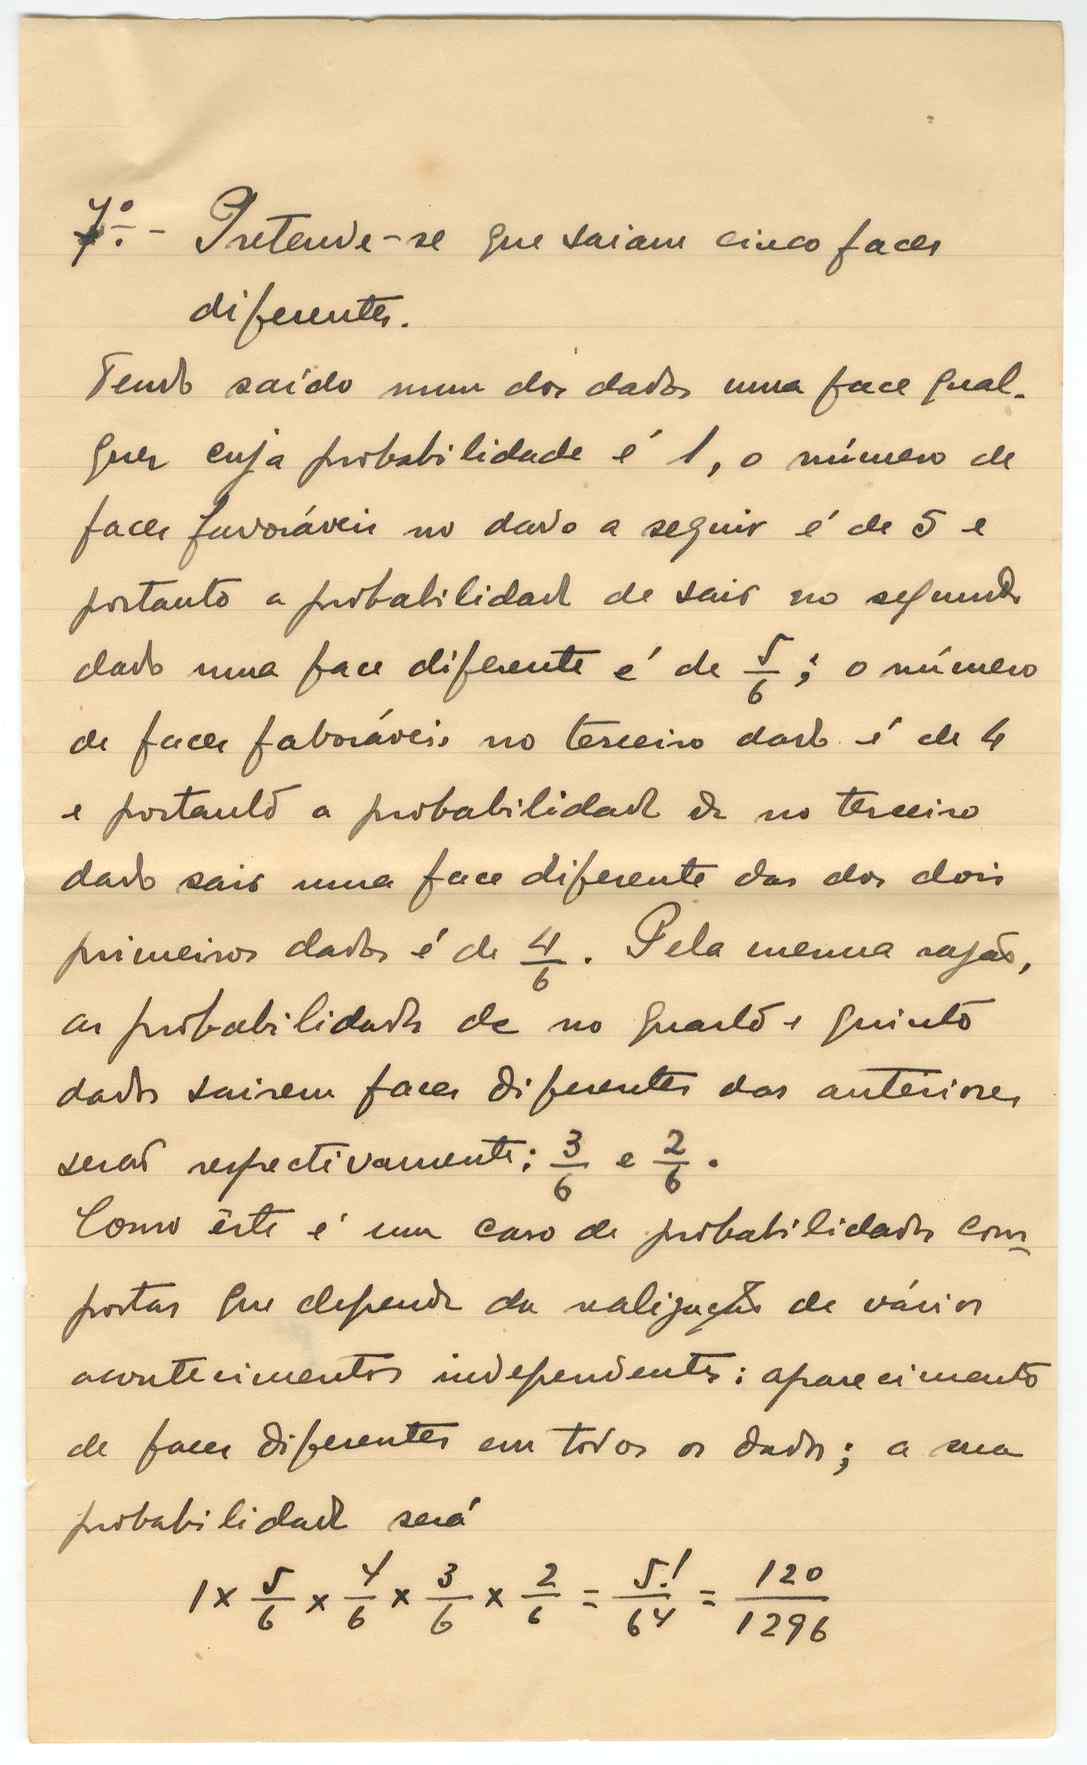 7º - Pretende-se que saiam cinco faces
diferentes.
Tendo saído num dos dados uma face qual-
quer cuja probabilidade é 1, o número de
faces favoráveis no dado a seguir é de 5 e
portanto a probabilidade de sair no segundo
dado uma face diferente é de 5/6; o número
de faces faboráveis no terceiro dado é de 4
e portanto a probabilidade de no terceiro
dado sair uma face diferente das dos dois
primeiros dados é de 4/6. Pela mesma razão,
as probabilidades de no quarto e quinto
dados sairem faces diferentes das anteriores
serão respectivamente: 3/6 e 2/6.
Como êste é um caso de probabilidades com-
postas que depende da realização de vários
acontecimentos independentes: aparecimento
de faces diferentes em todos os dados; a sua
probabilidade será
1 x 5/6 x 4/6 x 3/6 x 2/6 = 5!/6⁴ = 120/1296